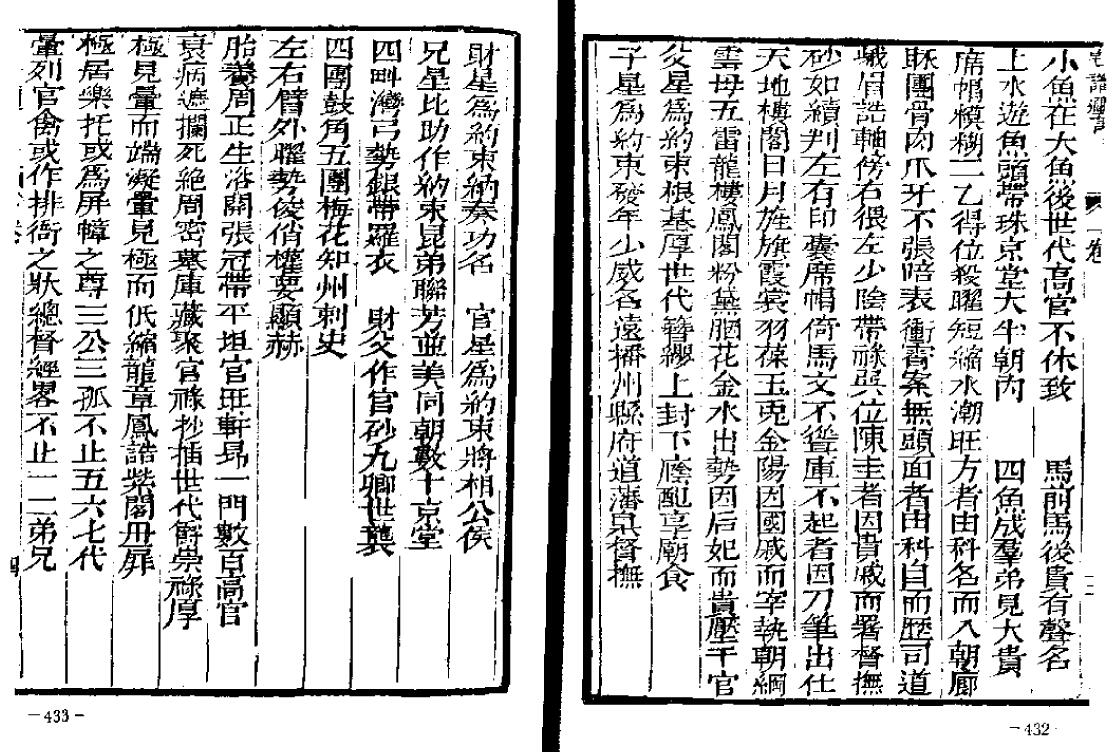 卷一
小魚在大魚後世代高官不休致　馬前馬後貴有聲名
上水遊魚頭帶珠京堂大半朝內　四魚成羣弟見大貴
席帽模糊一乙得位殺曜短縮水潮旺方者由科名而入朝廊
眿團骨肉爪牙不張暗表衝霄案無頭面者由科自而歷司道
蛾眉誥軸傍右很左少陰帶祿異位陳圭者因貴戚而署督撫
砂如續判左有印囊席帽倚馬文不聳庫不起者因刀筆出仕
天地樓閣日月旌旗霞裳羽葆玉兎金陽因國戚而宰執朝綱
雲母五雷龍樓鳳閣粉黛胭花金水出勢因后妃而貴壓千官
父星為約束根基厚世代簪纓上封下廕配享廟食
子星為約東發年少威名遠播州縣府道藩臬督撫
二
－432－
財星為約束納奏功名　官星為約東將相公侯
兄星比助作約束昆弟聯芳並美同朝數十京堂
四畔灣弓勢銀帶羅衣　財父作官砂九卿世襲
四團鼓角五團梅花知州刺史
左右臂外曜勢俊俏權要顯赫
胎養周正生浴開張冠帶平坦官旺軒昂一門數百高官
衰病遮攔死絕周密墓庫藏聚官祿抄插世代爵崇祿厚
極見暈而端凝暈見極而低縮龍章鳳誥紫閣丹扉
極居樂托或為屏幛之尊三公三孤不止五六七代
暈列官禽或作排衙之狀總督經畧不止一二弟兄
四
－433－